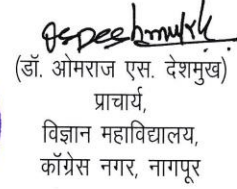 (डॉ. ओमराज एस. देशमुख)
प्राचार्य,
विज्ञान महाविद्यालय,
कॉंग्रेस नगर, नागपूर